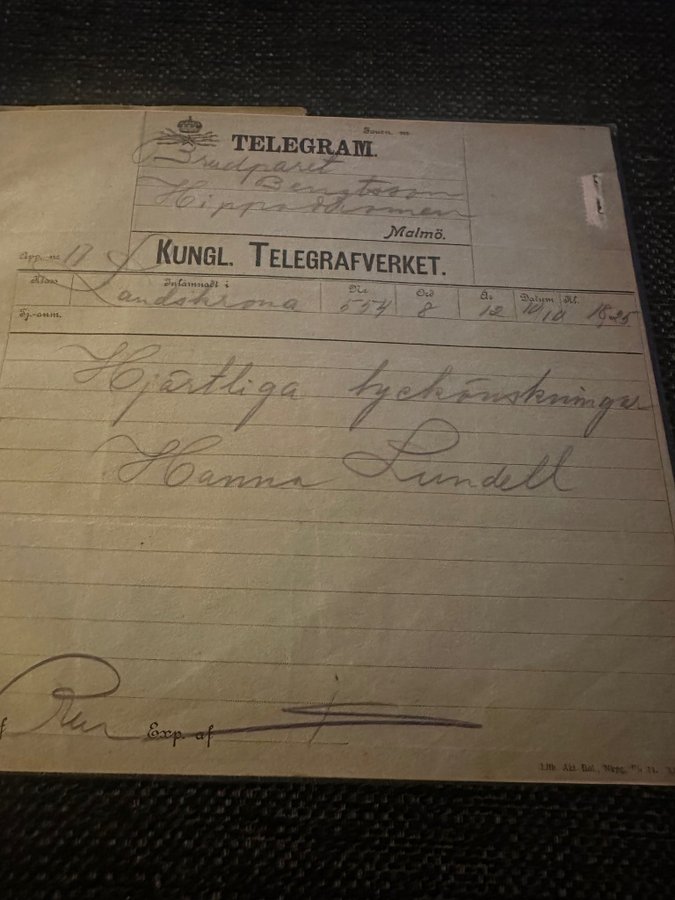 TELEGRAM.
Brudparet
Bengtsson
Hippodromen
Malmö.
App. nr 17
KUNGL. TELEGRAFVERKET.
Klass Inlämnadt i Nr Ord År Datum Kl.
Landskrona 554 8 12 10/10 18,25
Tj.-anm.
Hjärtliga lyckönskningar
Hanna Lundell
Exp. af